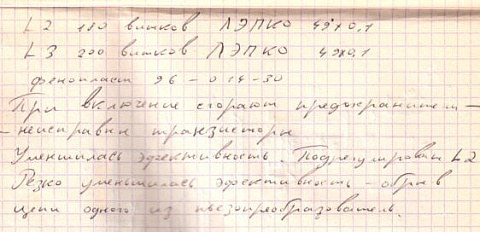 L2 180 витков ЛЭПКО 49х0,1
L3 200 витков ЛЭПКО 49х0,1
фенопласт 96-014-30
При включение сгорают предохранители-
-неисравны транзисторы
Уменшилась эфективность. Подрегулировать L2
Резко уменьшилась эфективность - обрыв
цепи одного из пьезопреобразователь.